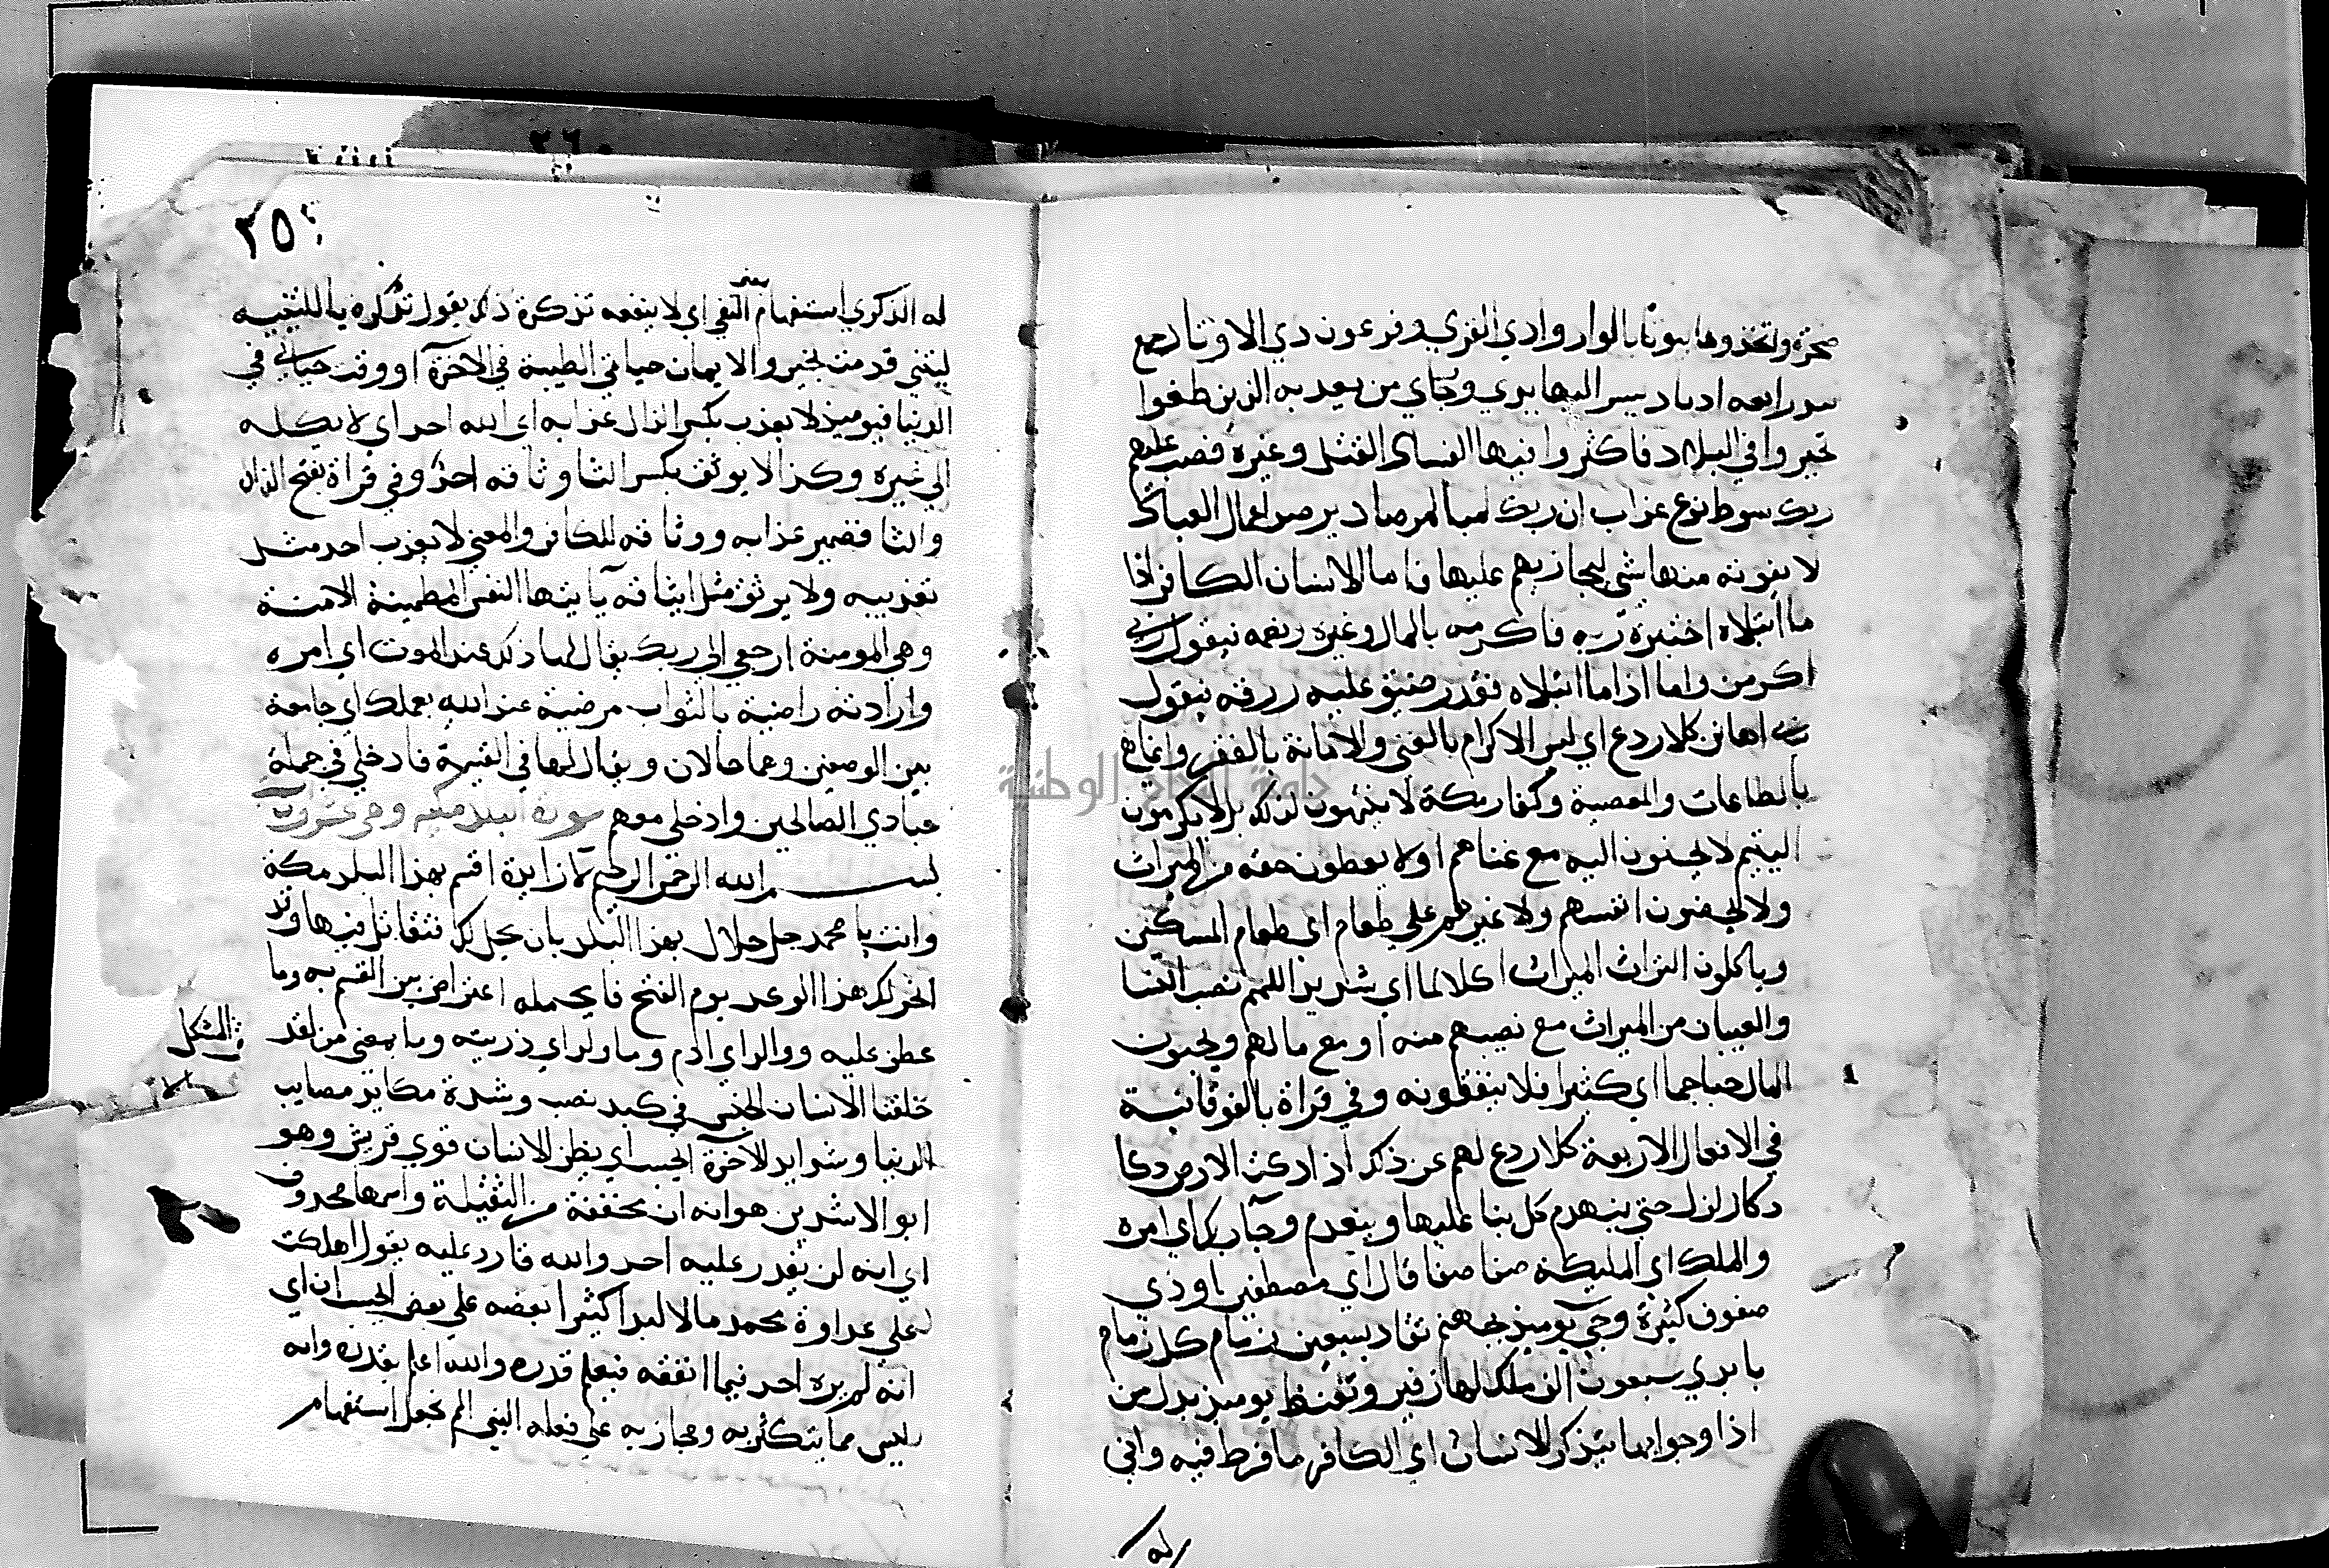 صخرة واتخذوها بيوتا بالواد وادي القري وفرعون ذي الاوتاد جمع
يشد اليها يدي ورجلي من يعذبه الذين طغوا
تجبروا في البلاد فاكثروا فيها الفساد القتل وغيره فصب عليهم
ربك سوط نوع عذاب ان ربك لبا لمرصاد يرصد اعمال العباد
لا يفوته منها شي ليجازيهم عليها فاما الانسان الكافر اذا
ما ابتلاه اختبره ربه فاكرمه بالمال وغيره ونعمه فيقول ربي
اكرمن واما اذا ما ابتلاه فقدر ضيق عليه رزقه فيقول
ربي اهانن كلا ردع اي ليس الاكرام بالغني والاهانة بالفقر وانما هو
بالطاعات والمعصية وكفار مكة لا ينتهون لذلك بل لا يكرمون
اليتيم لا يحسنون اليه مع غناهم او لا يعطون حقه من الميراث
ولا يحضون انفسهم ولا غيرهم علي طعام اي طعام المسكين
وياكلون التراث الميراث اكلا لما اي شديدا للمهم نصيب النسا
والصبيان من الميراث مع نصيبهم منه او مع مالهم ويحبون
المال حبا جما اي كثيرا فلا ينفقونه وفي قراة بالفوقانية
في الافعال الاربعة كلا ردع لهم عن ذلك اذا دكت الارض دكا
دكا زلزلت حتي ينهدم كل بنا عليها وينعدم وجا ربك اي امره
والملك اي المليكة صفا صفا قال اي مصطفين او ذي
صفوف كثيرة وجي يوميذ بجهنم تقاد بسبعين زمام كل زمام
بايدي سبعون الف ملك لها زفير وتغيظ يوميذ بدل من
اذا وجوابها يتذكر الانسان اي الكافر ما فرط فيه واني
له
٣٦٠
٢٥
له الذكري استفهام بمعني النفي اي لا ينفعه تذكره ذلك يقول تذكره يا للتنبيه
ليتني قدمت لخير والايمان حياتي الطيبة في الاخرة او وقت حياتي في
الدنيا فيوميذ لا يعذب بكسر الذال عذابه اي الله احد اي لا يكله
الي غيره وكذا لا يوثق بكسر الثا وثاقه احد وفي قراة بفتح الذال
والثا فضمير عذابه ووثاقه للكافر والمعني لا يعذب احد مثل
تعذيبه ولا يوثق مثل ايثاقه يا ايتها النفس المطمينة الامنة
وهي المومنة ارجعي الي ربك يقال لها ذلك عند الموت اي امره
وارادته راضية بالثواب مرضية عند الله بعملك اي جامعة
بين الوصفين وهما حالان ويقال لها في القيمة فادخلي في جملة
عبادي الصالحين وادخلي معهم سورة البلد مكية وهي عشرون اية
بسم الله الرحمن الرحيم لا زايدة اقسم بهذا البلد مكة
وانت يا محمد حل حلال بهذا البلد بان يحل لك فتقاتل فيها وقد
انجز لك هذا الوعد يوم الفتح فالجملة اعتراض بين القسم به وما
عطف عليه ووالد اي ادم وما ولد اي ذريته وما بمعني من لقد
خلقنا الانسان الجنس في كبد نصب وشدة مكابد مصايب
الدنيا وشدايد الاخرة ايحسب اي يظن الانسان قوي قريش وهو
ابو الاشدين هو انه ان مخففة من الثقيلة واسمها محذوف
اي انه لن يقدر عليه احد والله قادر عليه يقول اهلكت
علي عداوة محمد مالا لبدا كثيرا بعضه علي بعض ايحسب ان اي
انه لم يره احد فيما انفقه فيعلم قدره والله اعلم بقدره وانه
ليس مما يتكثر به ومجازيه علي فعله السي الم نجعل استفهام